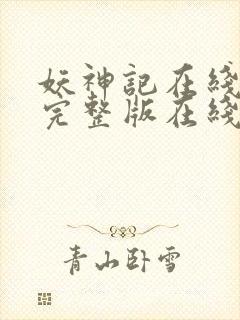 妖神記在綫
完整版在綫
青山卧雪